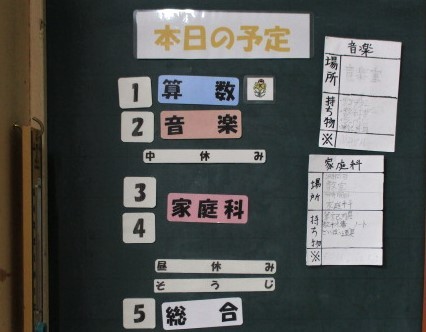 本日の予定
1 算数
2 音楽
中休み
3
4
家庭科
昼休み
そうじ
5 総合
音楽
場所
持ち物
※
家庭科
場所
持ち物
※